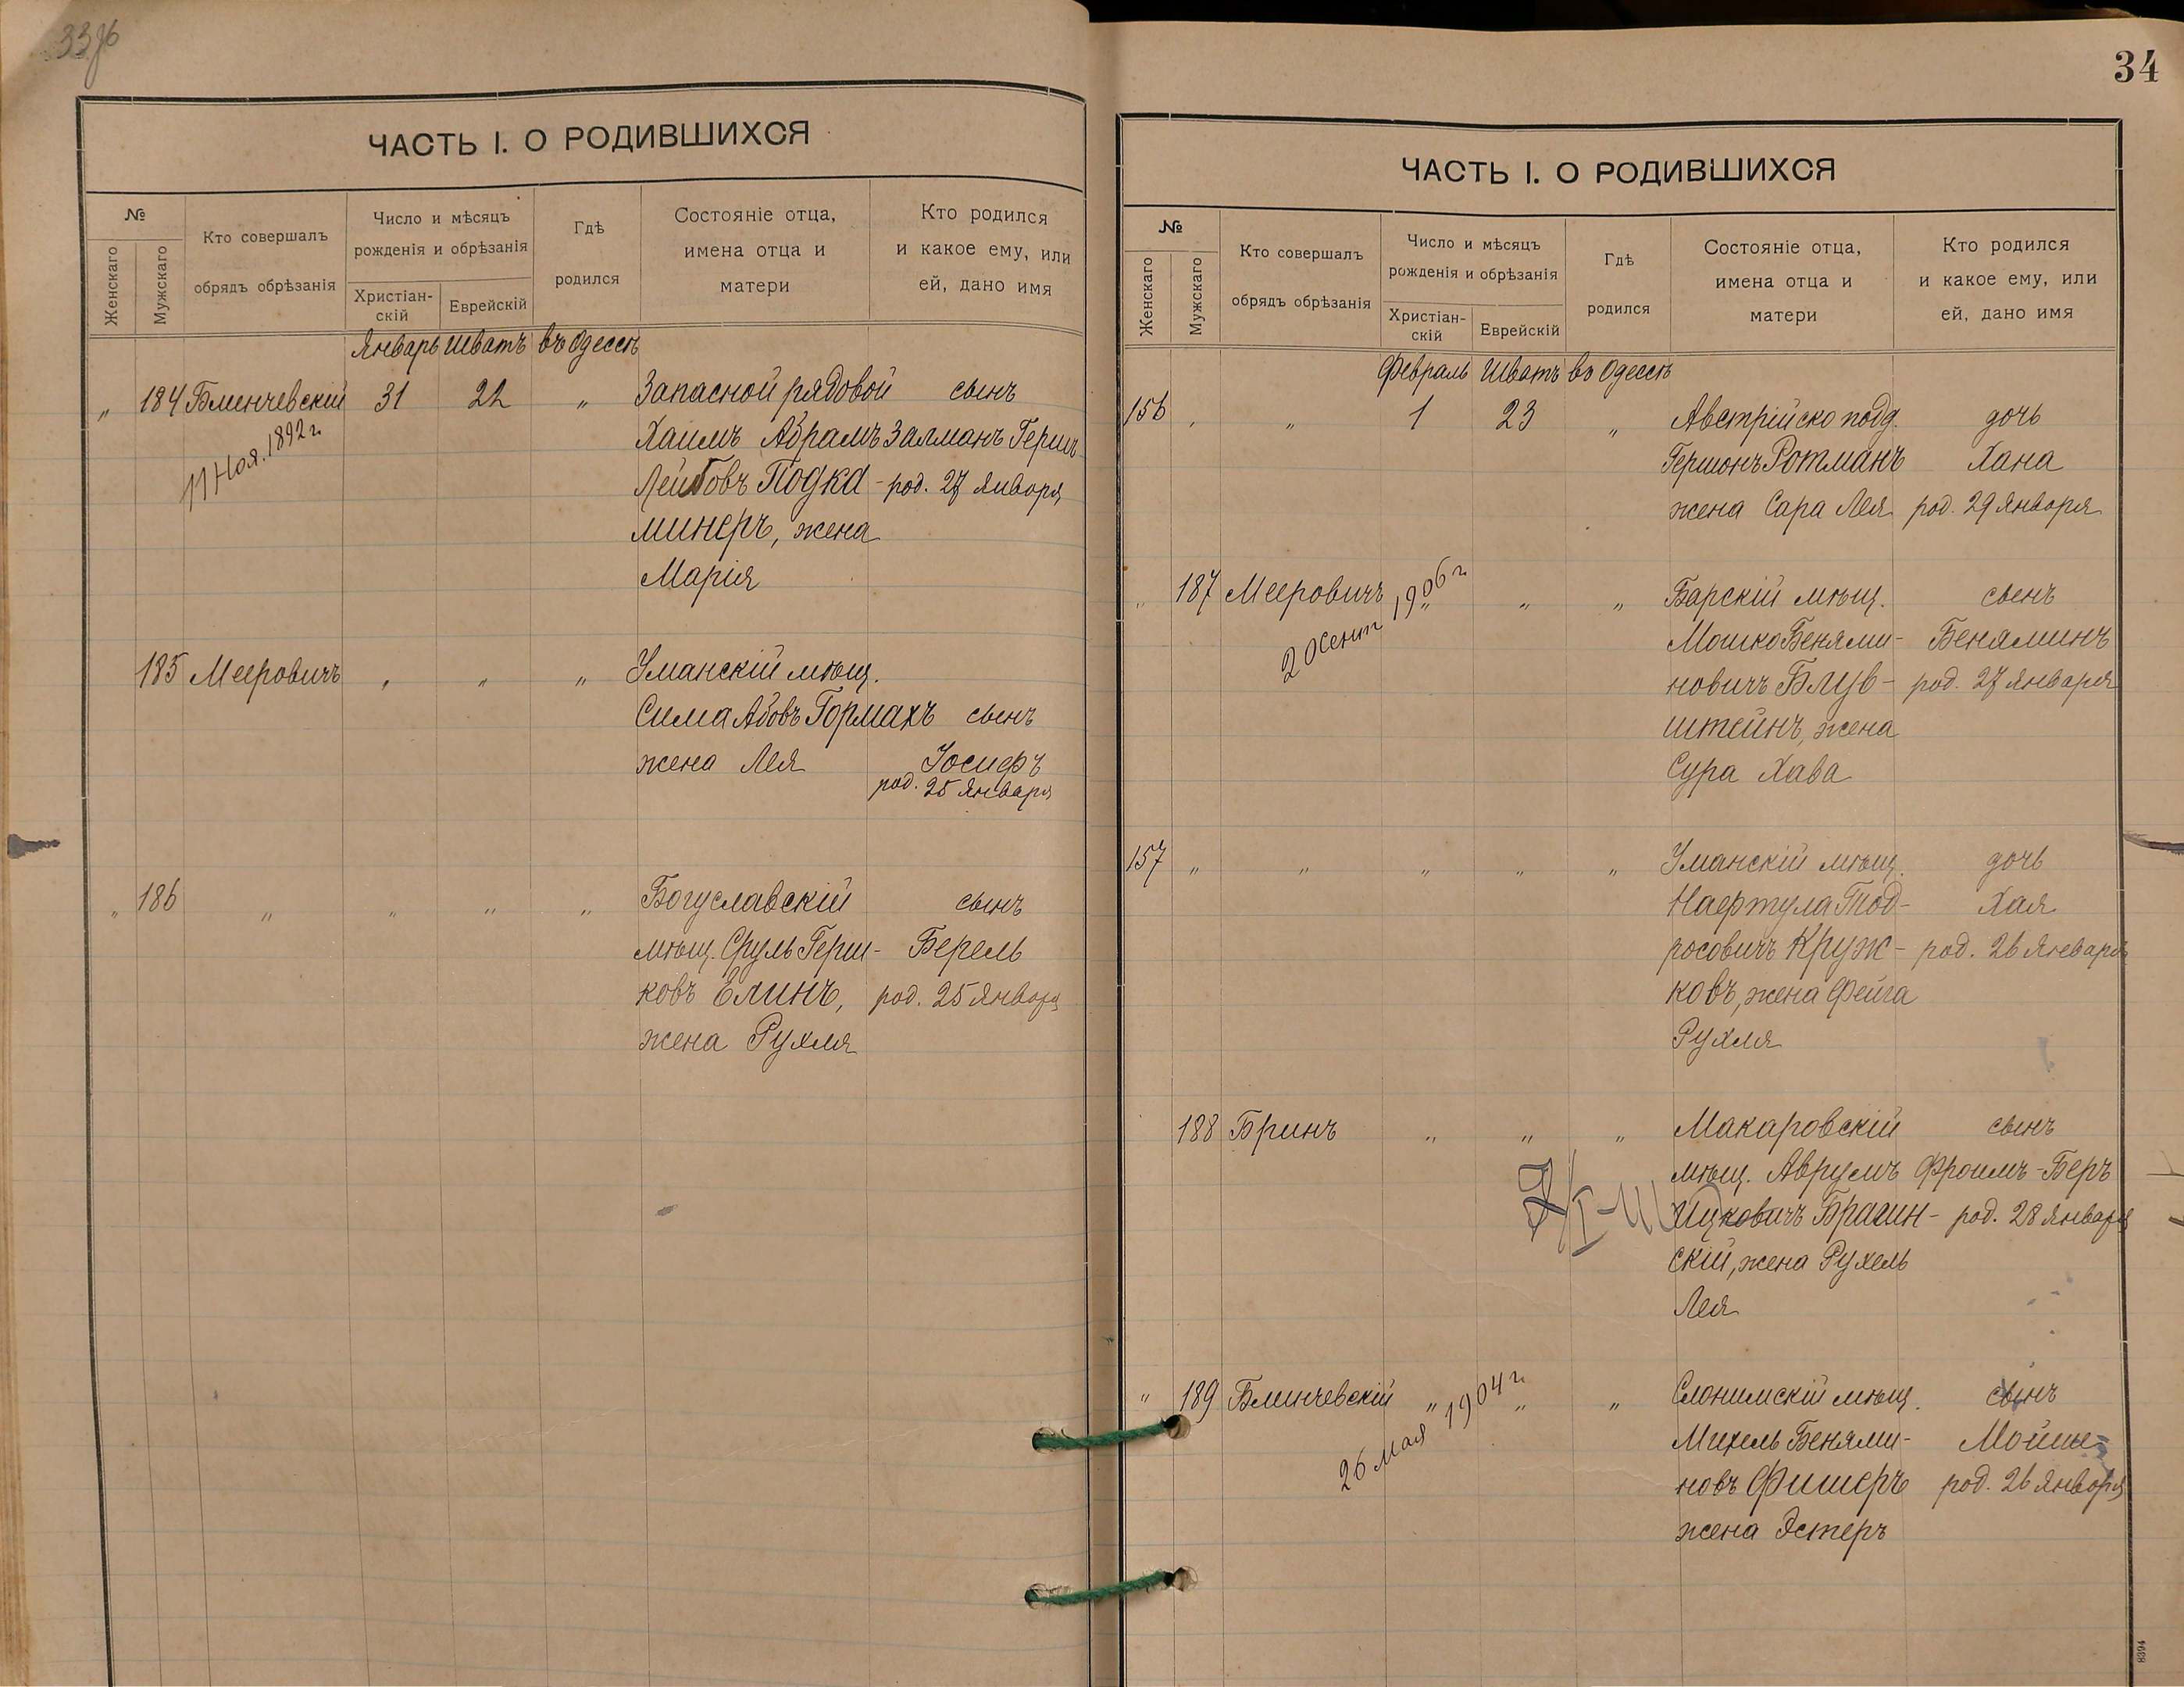 33об
ЧАСТЬ I. О РОДИВШИХСЯ
№
Женскаго
Мужскаго
Кто совершалъ
обрядъ обрѣзанія
Число и мѣсяцъ
рожденія и обрѣзанія
Христіан-
скій
Еврейскій
Гдѣ
родился
Состояніе отца,
имена отца и
матери
Кто родился
и какое ему, или
ей, дано имя
Январь Шватъ въ Одессѣ
„ 184 Блинчевскій 31 22 „ Запасной рядовой сынъ
11 Ноя. 1892 г.
Хаимъ Абрамъ Залманъ Герш
Лейбовъ Подка- род. 27 Января
минеръ, жена
Марія
185 Мееровичъ „ „ „ Уманскій мѣщ.
Сима Абовъ Гормахъ сынъ
жена Лея Іосифъ
род. 25 Января
„ 186 „ „ „ „ Богуславскій сынъ
мѣщ. Сруль Герш- Берель
ковъ Елинъ, род. 25 Января
жена Рухля
34
ЧАСТЬ I. О РОДИВШИХСЯ
№
Женскаго
Мужскаго
Кто совершалъ
обрядъ обрѣзанія
Число и мѣсяцъ
рожденія и обрѣзанія
Христіан-
скій
Еврейскій
Гдѣ
родился
Состояніе отца,
имена отца и
матери
Кто родился
и какое ему, или
ей, дано имя
Февраль Шватъ въ Одессѣ
156 „ „ 1 23 „ Австрійско подд. дочь
Гершонъ Ротманъ Хана
жена Сара Лея род. 29 Января
„ 187 Мееровичъ „ „ „ Барскій мѣщ. сынъ
20 Сент 1906 г.
Мошко Бенями- Беняминъ
новичъ Блув- род. 27 Января
штейнъ, жена
Сура Хава
157 „ „ „ „ „ Уманскій мѣщ. дочь
Нафтула Тод- Хая
росовичъ Круж- род. 26 Января
ковъ, жена Фейга
Рухля
188 Бринъ „ „ „ Макаровскій сынъ
мѣщ. Аврумъ Фроимъ-Беръ
Ицковичъ Брагин- род. 28 Января
скій, жена Рухель
Лея
„ 189 Блинчевскій „ „ „ Слонимскій мѣщ. сынъ
26 Мая 1904 г.
Михель Бенями- Мойше
новъ Фишеръ род. 26 Января
жена Эстеръ
8394